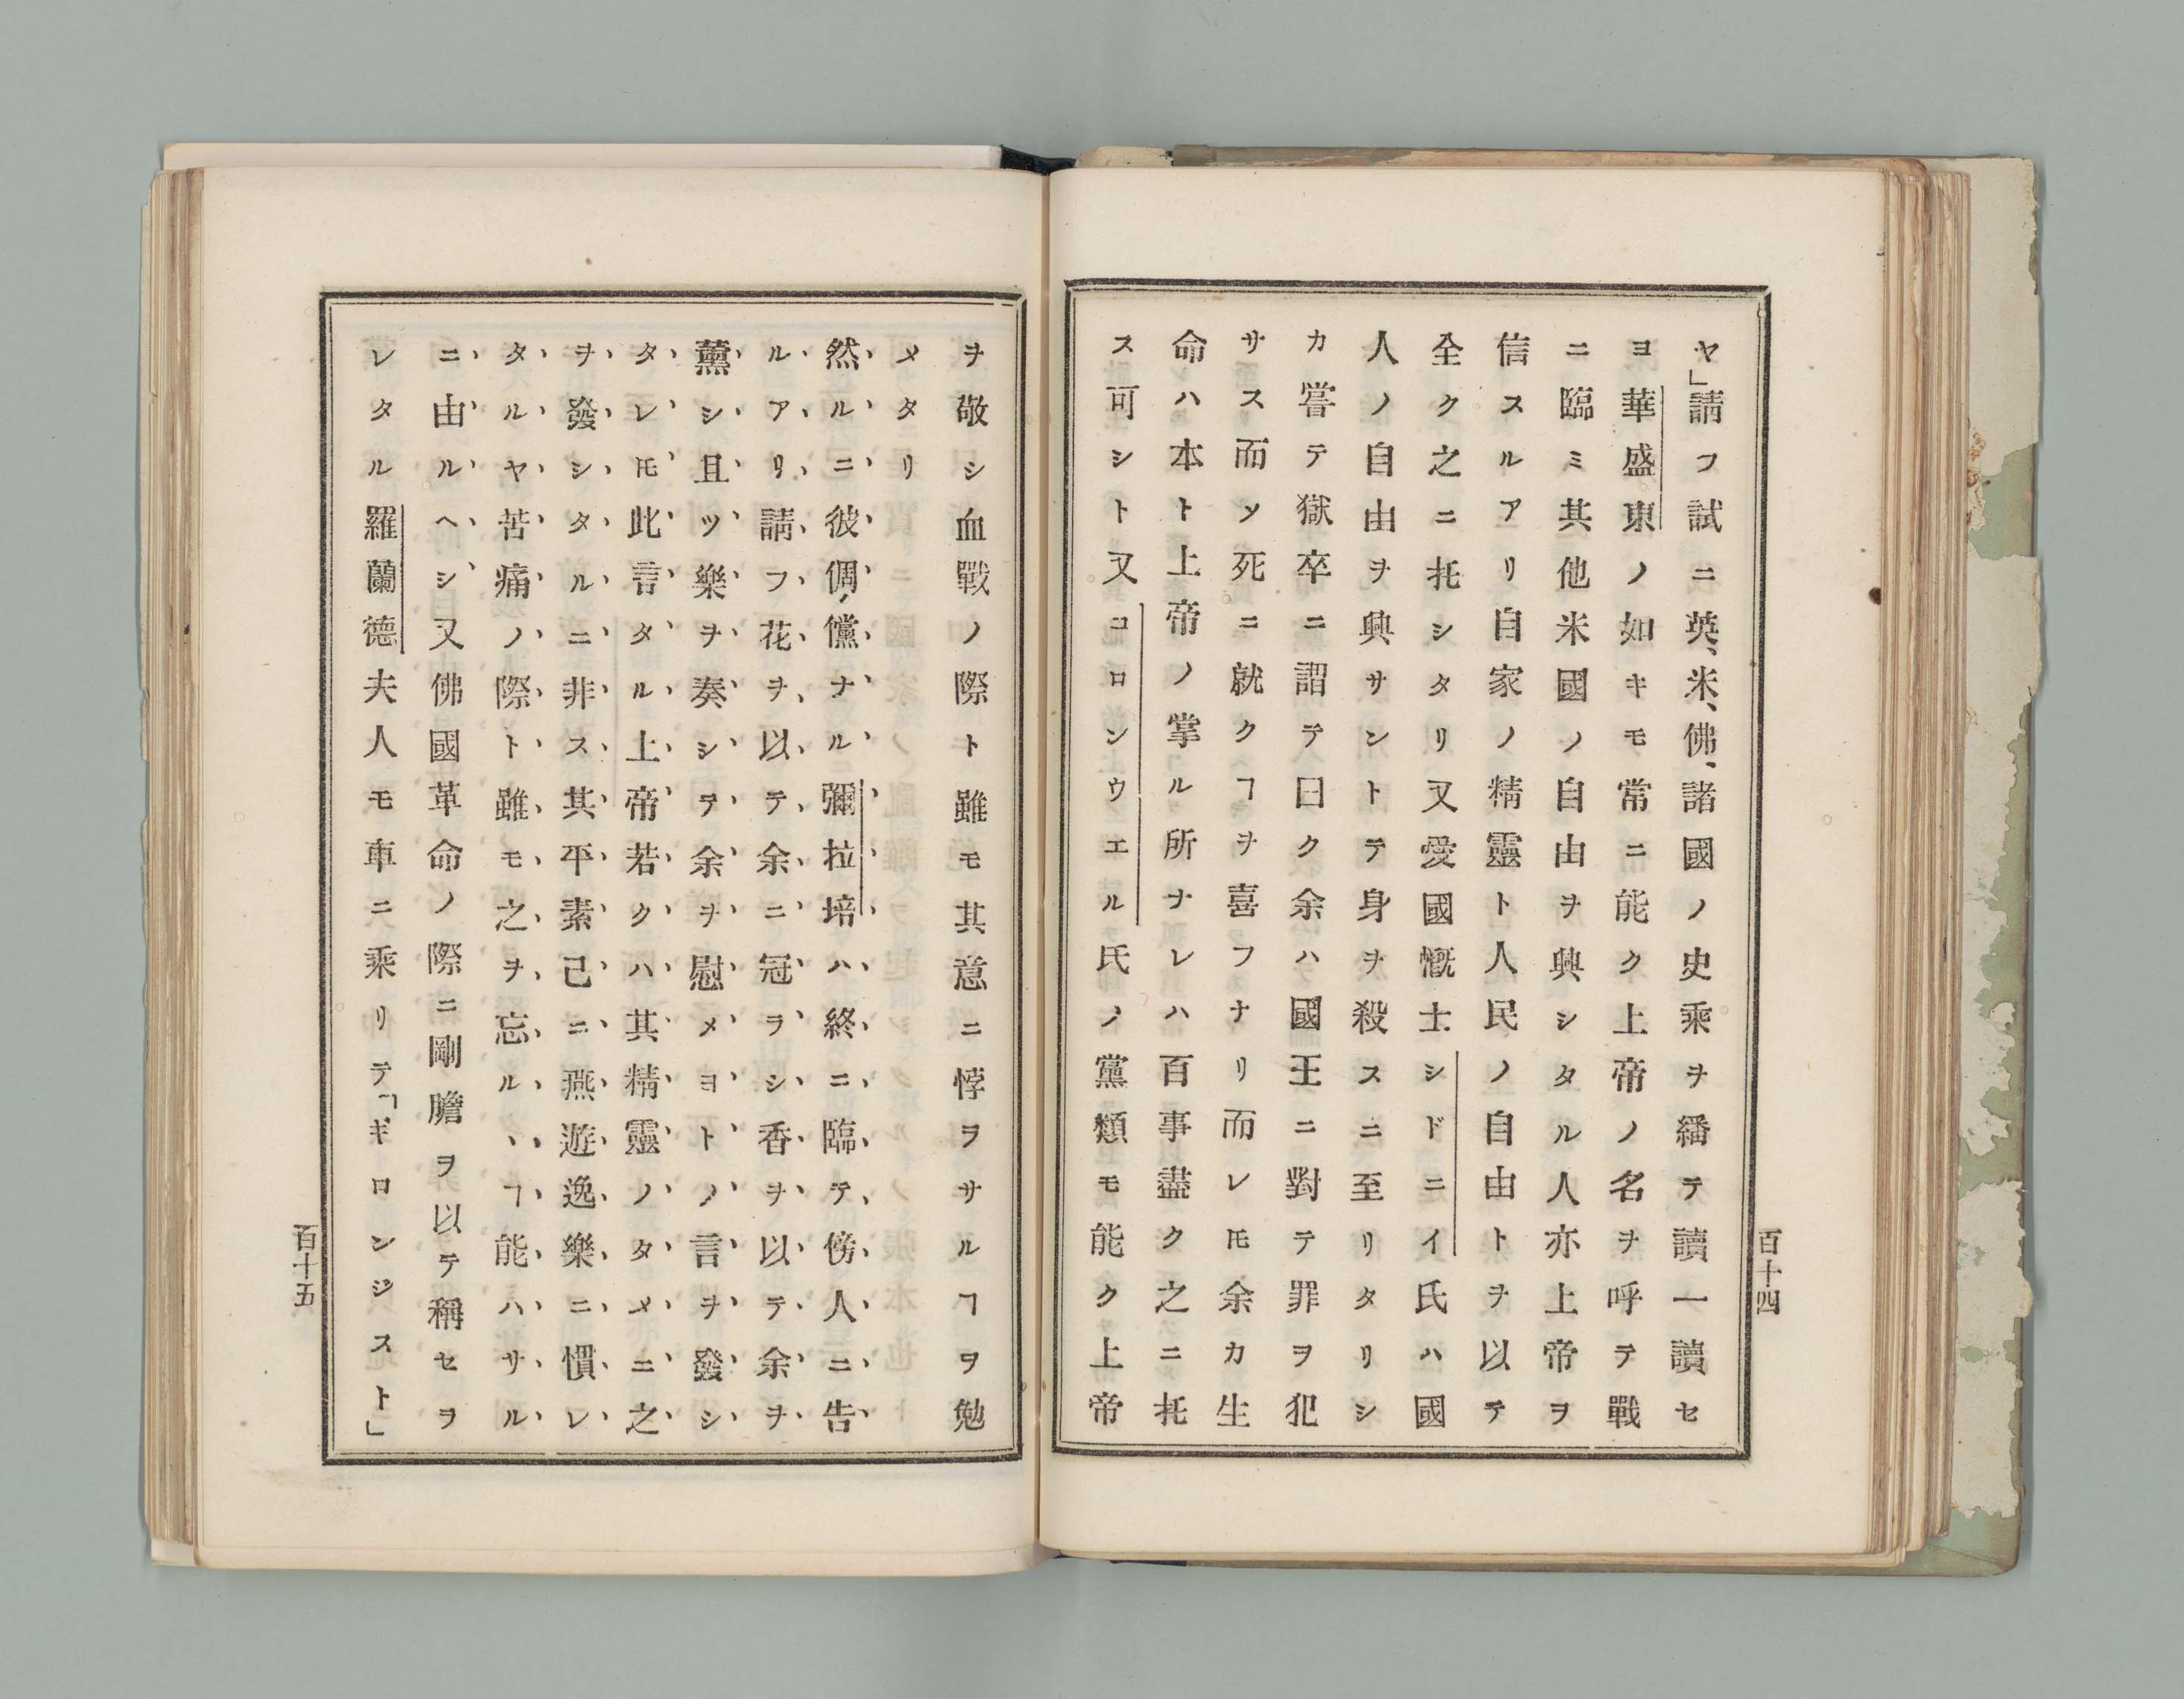 ヤ」請フ試ニ英、米、佛、諸國ノ史乘ヲ繙テ讀一讀セ
ヨ華盛東ノ如キモ常ニ能ク上帝ノ名ヲ呼テ戰
ニ臨ミ其他米國ノ自由ヲ興シタル人亦上帝ヲ
信スルアリ自家ノ精靈ト人民ノ自由トヲ以テ
全ク之ニ托シタリ又愛國慨士シドニイ氏ハ國
人ノ自由ヲ興サントテ身ヲ殺スニ至リタリシ
カ嘗テ獄卒ニ謂テ曰ク余ハ國王ニ對テ罪ヲ犯
サス而ソ死ニ就クヿヲ喜フナリ而レ𪜈余カ生
命ハ本ト上帝ノ掌ル所ナレハ百事盡ク之ニ托
ス可シト又コロンウエル氏ノ黨類モ能ク上帝
百十四
ヲ敬シ血戰ノ際ト雖モ其意ニ悖ヲサルヿヲ勉
メタリ
然ルニ彼倜儻ナル彌拉培ハ終ニ臨テ傍人ニ告
ルアリ請フ花ヲ以テ余ニ冠ラシ香ヲ以テ余ヲ
薰シ且ツ樂ヲ奏シテ余ヲ慰メヨトノ言ヲ發シ
タレ𪜈此言タル上帝若クハ其精靈ノタメニ之
ヲ發シタルニ非ス其平素己ニ燕遊逸樂ニ慣レ
タルヤ苦痛ノ際ト雖モ之ヲ忘ルヽヿ能ハサル
ニ由ルヘシ又佛國革命ノ際ニ剛膽ヲ以テ稱セヲ
レタル羅蘭德夫人モ車ニ乘リテ「ギロンジスト」
百十五